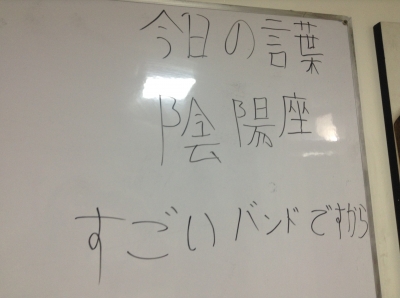 今日の言葉
陰陽座
すごいバンドですから